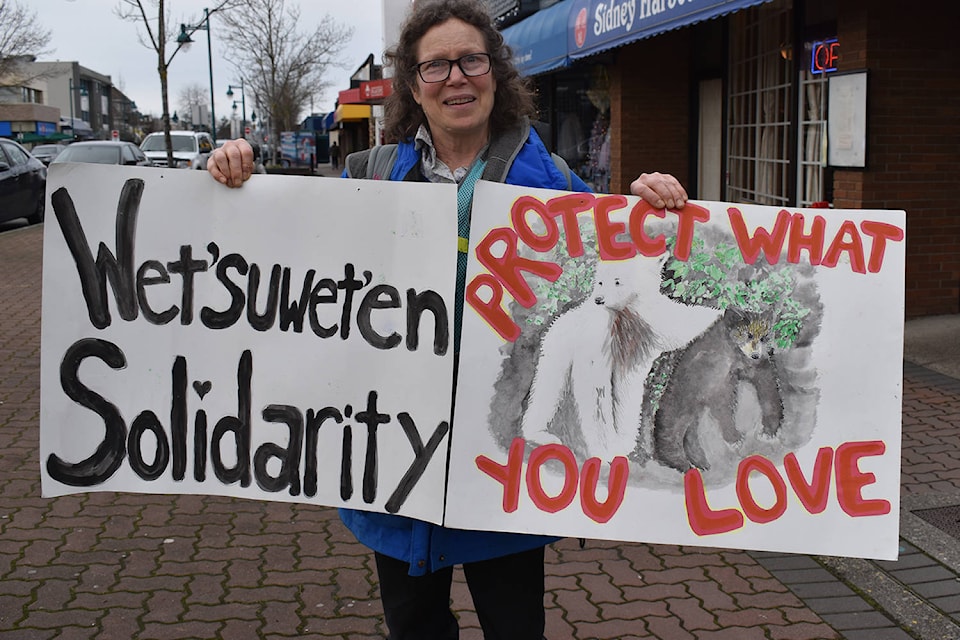 Wet'suwet'en
Solidarity
PROTECT WHAT
YOU LOVE
Sidney